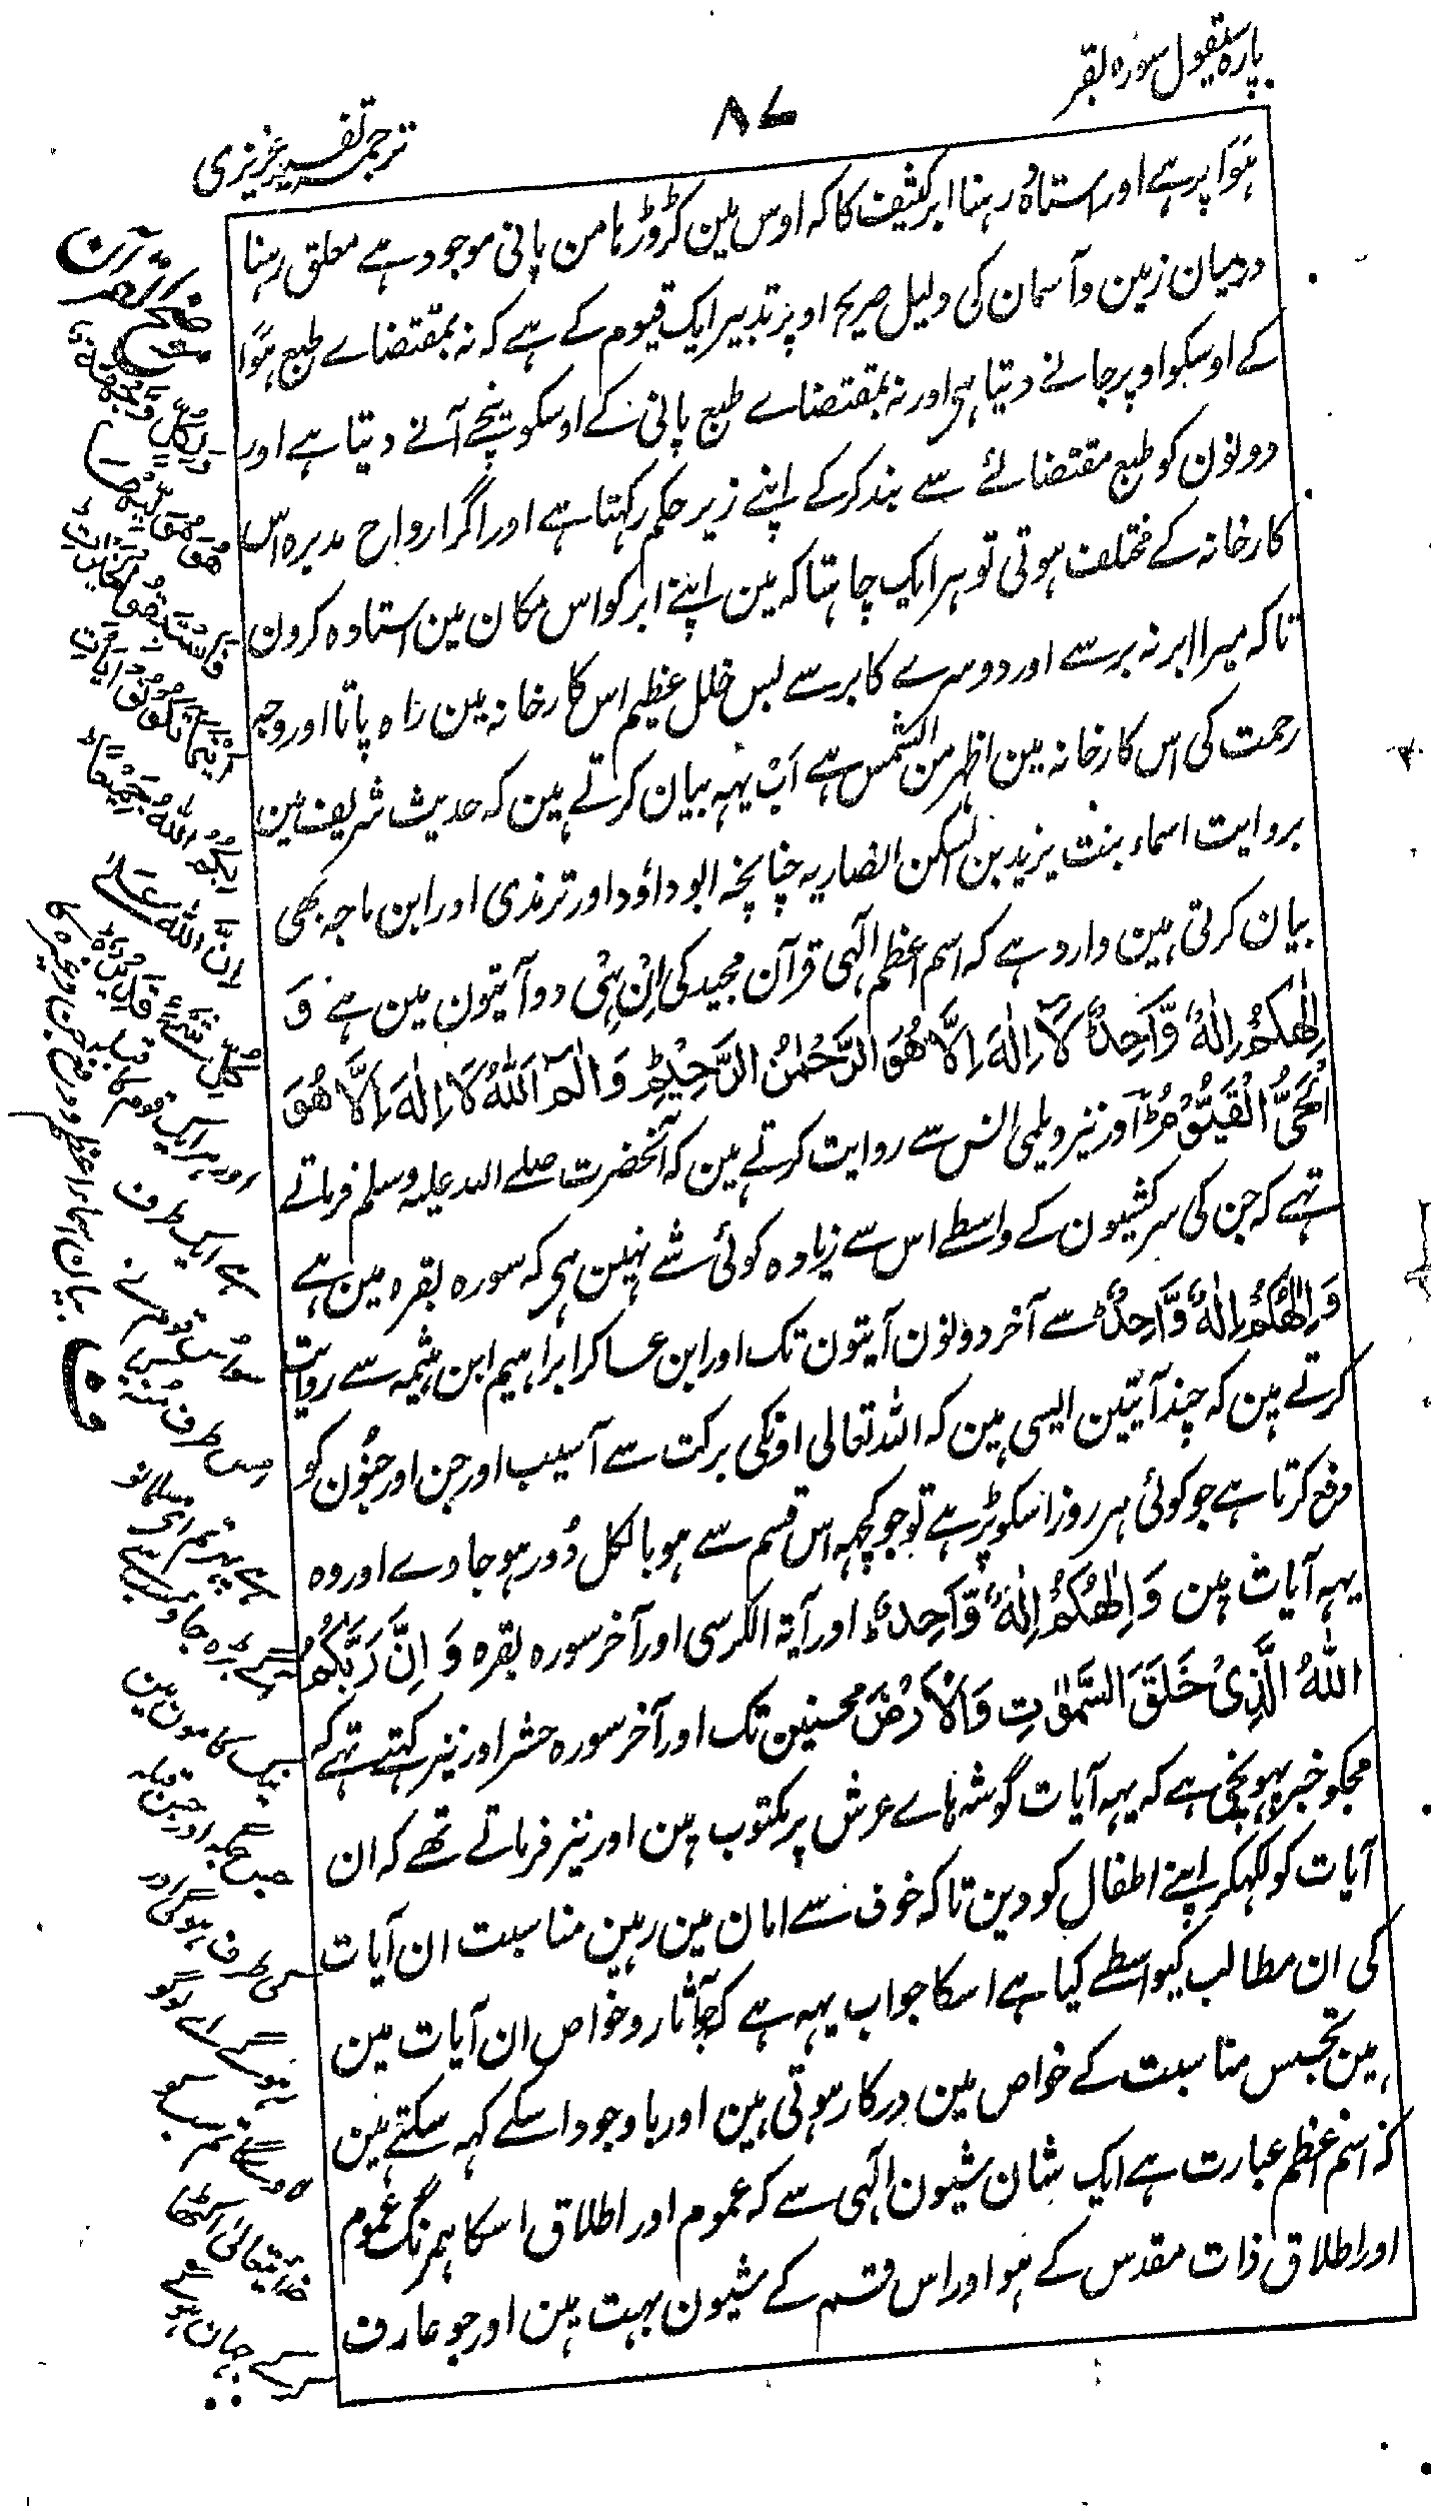 پارہ سیقول سورہ بقر
۸۷
ترجمہ تفسیر عزیزی
ہَوا پر ہے اور استادہ رہنا ابر کثیف کا کہ اوس مین کڑوڑہا من پانی موجود ہے معلق رہنا
درمیان زمین و آسمان کی دلیل صریح اوپر تدبیر ایک قیوم کے ہے کہ نہ بمقتضاے طبع ہَوا
کے اوسکو اوپر جانے دیتا ہی اور نہ بمقتضاے طبع پانی کے اوسکو نیچے آنے دیتا ہے اور
دونون کو طبع مقتضائے سے بند کرکے اپنے زیر حکم رکہتا ہے اور اگر ارواح مدبرہ اس
کارخانہ کے مختلف ہوتی تو ہر ایک چاہتا کہ مین اپنے ابر کو اس مکان مین استادہ کرون
تاکہ میرا ابر نہ برسے اور دوسرے کا برسے بس خلل عظیم اس کارخانہ مین راہ پاتا اور وجہ
رحمت کی اس کارخانہ مین اظہر من الشمس ہے اَبْ یہہ بیان کرتے ہین کہ حدیث شریف مین
بروایت اسماء بنت یزید بن السکن انصاریہ چنانچہ ابو داؤد اور ترمذی اور ابن ماجہ بھی
بیان کرتی ہین وارد ہے کہ اسم اعظم الٰہی قرآن مجید کی اِنْ ہِیْ دو آیتون مین ہے وَ
اِلٰهُكُمْ اِلٰهٌ وَّاحِدٌ لَآ اِلٰهَ اِلَّا هُوَ الرَّحْمٰنُ الرَّحِيْمُ وَ الٓمٓ اَللّٰهُ لَا اِلٰهَ اِلَّا هُوَ
الْحَيُّ الْقَيُّوْمُ اور نیز ویلمی انس سے روایت کرتے ہین کہ آنحضرت صلے اللہ علیہ وسلم فرماتے
تہے کہ جن کی سرکشیون کے واسطے اس سے زیادہ کوئی شے نہین ہی کہ سورہ بقرہ مین ہے
وَاِلٰهُكُمْ اِلٰهٌ وَّاحِدٌ سے آخر دونون آیتون تک اور ابن عساکر ابراہیم ابن ہثیمہ سے روایت
کرتے ہین کہ چند آیتین ایسی ہین کہ اللہ تعالی اونکی برکت سے آسیب اور جن اور جنُون کو
دفع کرتا ہے جو کوئی ہر روز اسکو پڑہے تو جو کچہہ اس قسم سے ہو بالکل دُور ہو جاوے اور وہ
یہہ آیات ہین وَاِلٰهُكُمْ اِلٰهٌ وَّاحِدٌ اور آیۃ الکرسی اور آخر سورہ بقرہ وَ اِنَّ رَبَّكُمُ
اللّٰهُ الَّذِیْ خَلَقَ السَّمٰوٰتِ وَالْاَرْضَ محسنین تک اور آخر سورہ حشر اور نیز کہتے تہے کہ
مجکو خبر پہونچی ہے کہ یہہ آیات گوشہ ہاے عرش پر مکتوب ہین اور نیز فرماتے تھے کہ ان
آیات کو لکہکر اپنے اطفال کو دین تاکہ خوف سے امان مین رہین مناسبت ان آیات
کی ان مطالب کیواسطے کیا ہے اسکا جواب یہہ ہے کہ جو آثار و خواص ان آیات مین
ہین تجسس مناسبت کے خواص مین درکار ہوتی ہین اور باوجود اسکے کہہ سکتے ہین
کہ اسم اعظم عبارت ہے ایک شان شیون الٰہی سے کہ عموم اور اطلاق اسکا ہمرنگ عموم
اور اطلاق ذات مقدس کے ہو اور اس قسم کے شیون بہت ہین اور جو عارف
وَلِكُلٍّ وِّجْهَةٌ
هُوَ مُوَلِّيْهَا
فَاسْتَبِقُوا الْخَيْرَاتِ
اَيْنَمَا تَكُوْنُوْا يَأْتِ
بِكُمُ اللّٰهُ جَمِيْعًا
اِنَّ اللّٰهَ عَلٰى
كُلِّ شَيْءٍ قَدِيْرٌ
ف بیان اسماء اعظم و دفع جن وغیرہ کا